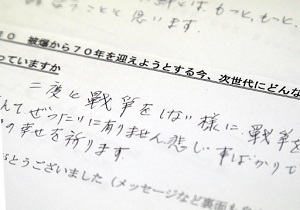 もっと、もっと、
ることと思います.
10 被爆から70年を迎えようとする今、次世代にどんな
っていますか
二度と戦争をしない様に、戦争を
んて、ぜったいに有りません悲しい事ばかりで
の幸せを祈ります.
とうございました（メッセージなど裏面も